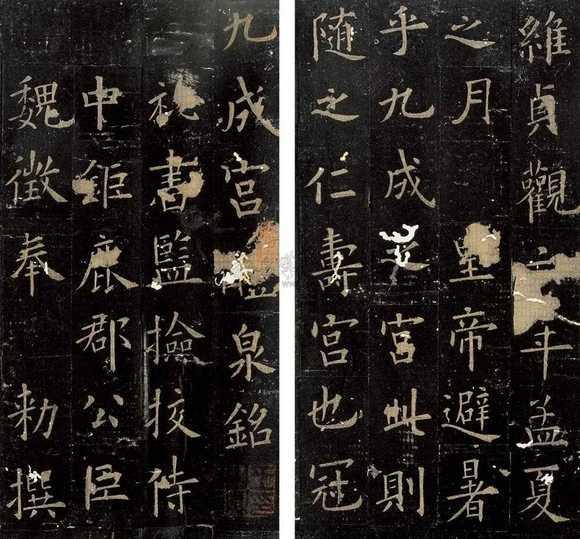 九成宫醴泉銘
祕書監撿挍侍
中鉅鹿郡公臣
魏徵奉勑撰
維貞觀六年孟夏
之月皇帝避暑
乎九成之宫此則
随之仁壽宫也冠